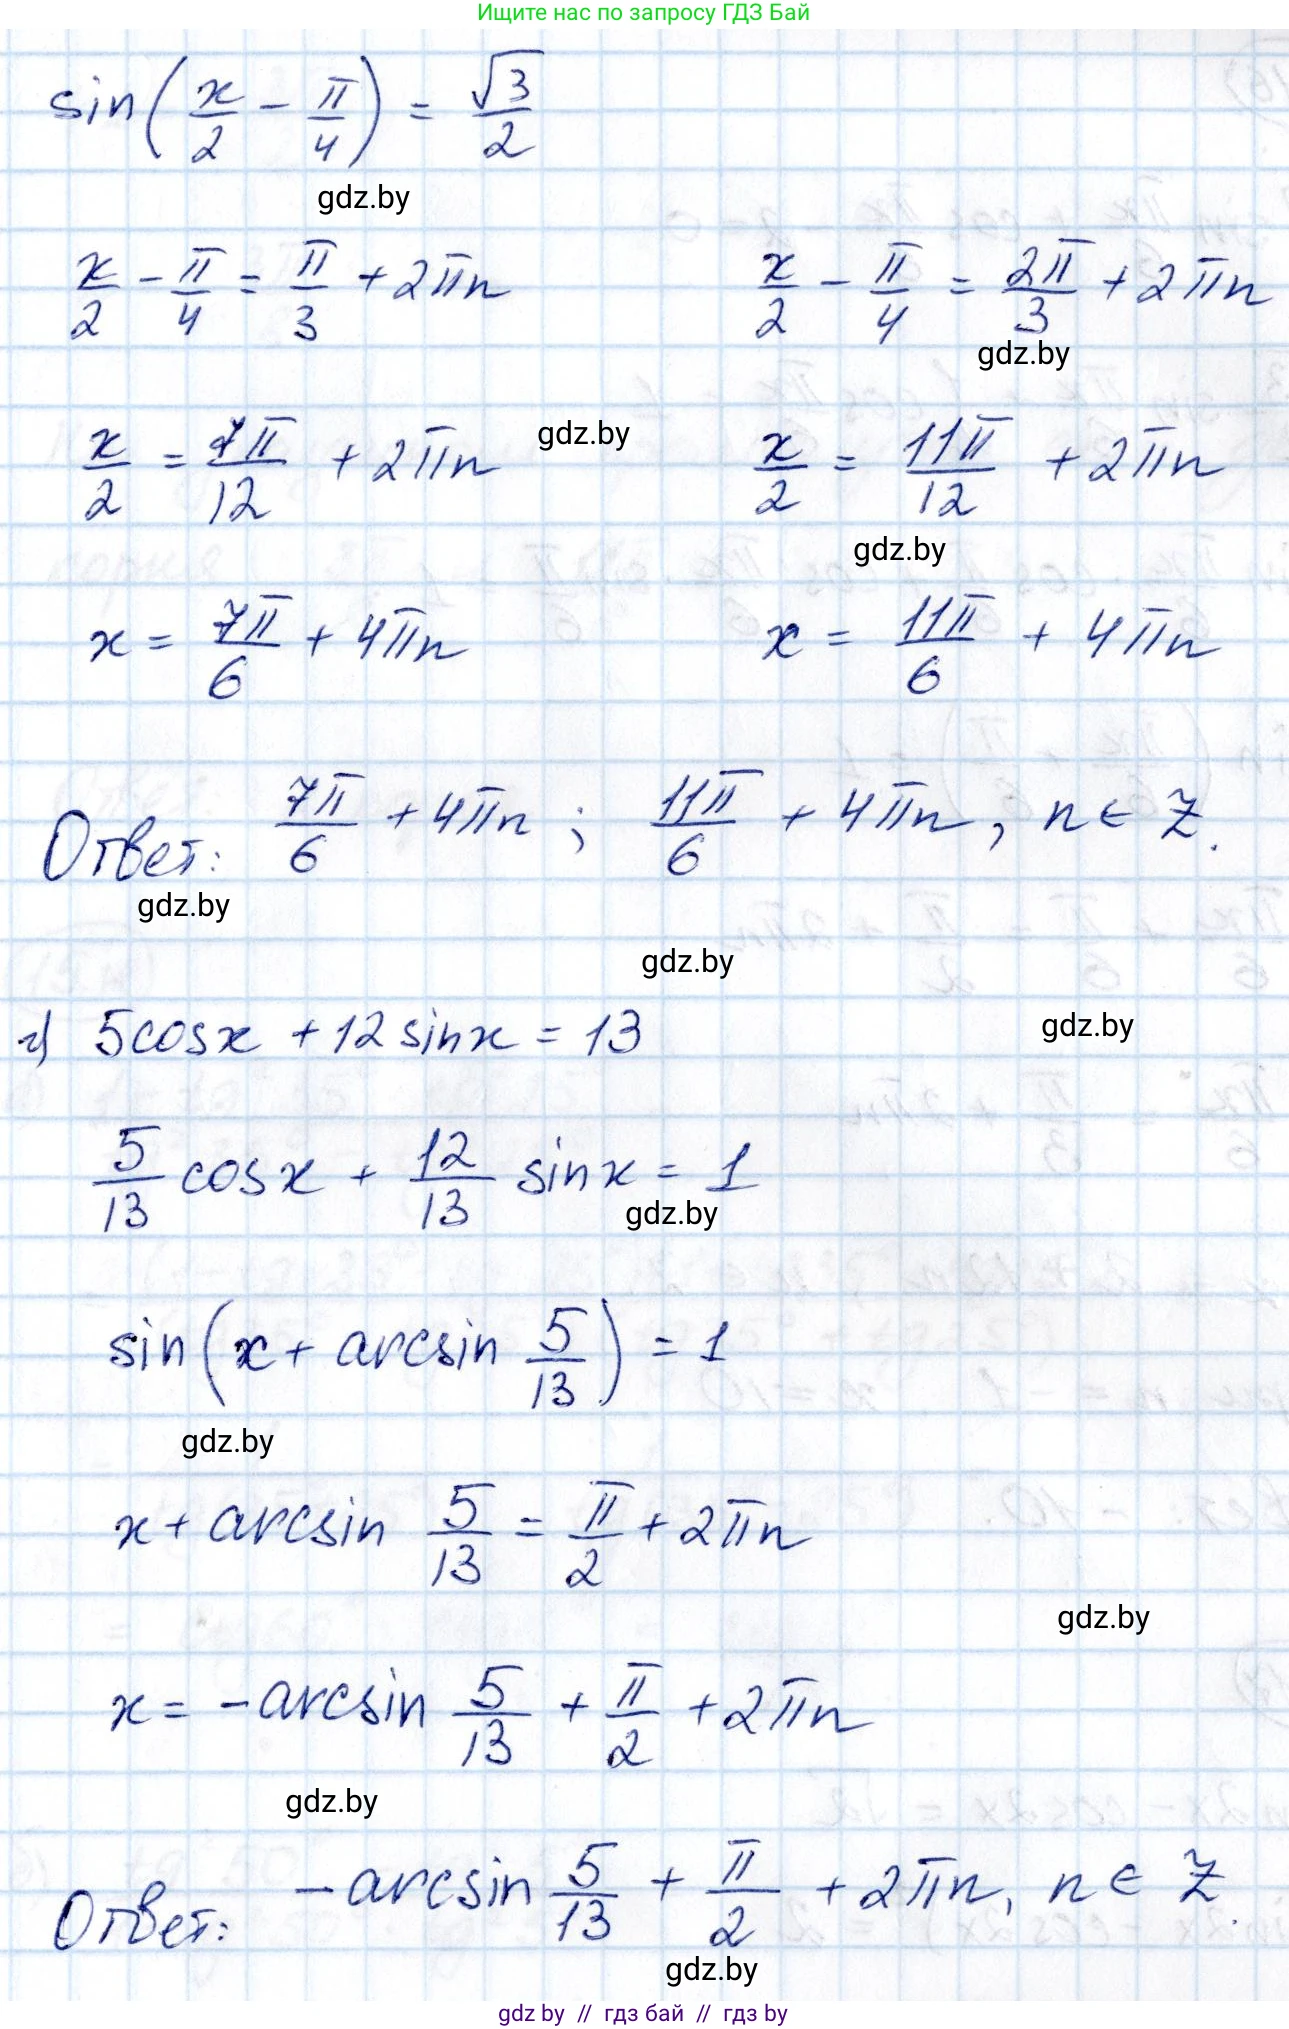 Ищите нас по запросу ГДЗ Бай
sin(x/2 − π/4) = √3/2
gdz.by
x/2 − π/4 = π/3 + 2πn    x/2 − π/4 = 2π/3 + 2πn
gdz.by
x/2 = 7π/12 + 2πn    gdz.by    x/2 = 11π/12 + 2πn
gdz.by
x = 7π/6 + 4πn    x = 11π/6 + 4πn
Ответ: 7π/6 + 4πn ; 11π/6 + 4πn, n ∈ Z.
gdz.by
gdz.by
г) 5cosx + 12 sinx = 13    gdz.by
5/13 cosx + 12/13 sinx = 1
gdz.by
sin(x + arcsin 5/13) = 1
gdz.by
x + arcsin 5/13 = π/2 + 2πn
gdz.by
x = −arcsin 5/13 + π/2 + 2πn
gdz.by
Ответ: −arcsin 5/13 + π/2 + 2πn, n ∈ Z.
gdz.by
gdz by // гдз бай // гдз by